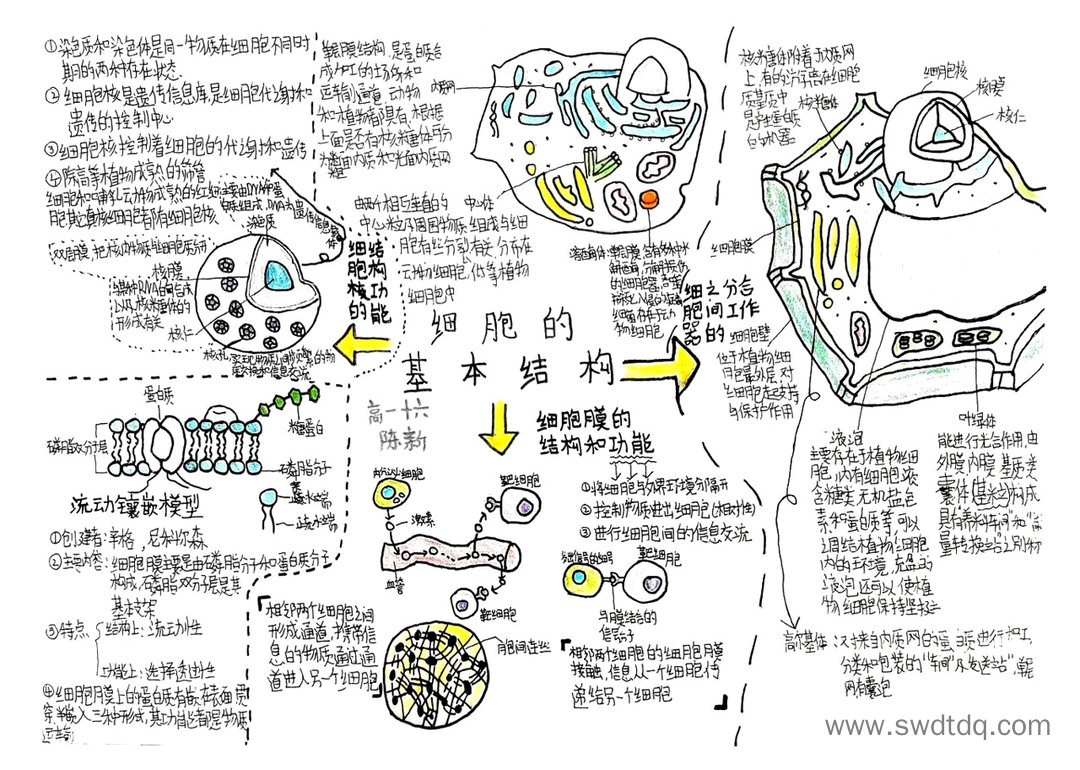 ①染色质和染色体是同一物质在细胞不同时
期的两种存在状态
②细胞核是遗传信息库,是细胞代谢和
遗传的控制中心
③细胞核控制着细胞的代谢和遗传
④除高等植物成熟的筛管
细胞和哺乳动物成熟的红细
胞真核细胞都有细胞核
主要由DNA和蛋
白质组成,DNA为遗传信息载体
染色质
双层膜,把核内物质与细胞质分开
核膜
与某种RNA的合成
以及核糖体的
形成有关
核仁
核孔
细胞核的
结构功能
单层膜结构,是蛋白质合
成加工的场所和
运输通道,动物
和植物都具有,根据
上面是否有核糖体可分
为糙面内质和光面内质网
内质网
由两个相互垂直的
中心粒及周围物质组成与细
胞有丝分裂有关,分布在
动物细胞,低等植物
细胞中
中心体
溶酶体:单层膜,含有多种水
解酶,分解衰老损伤
的细胞器,吞噬
物细胞
核糖体附着于内质网
上,有的游离在细胞
质基质中
是生产蛋白质
的机器
核糖体
细胞核
核膜
核仁
细胞膜
细胞器的
之间分工合作
细胞壁
位于植物细
胞最外层,对
细胞起支持
与保护作用
细胞的
基本结构
高一十六
陈新
蛋白质
糖蛋白
磷脂双分子层
磷脂分子
亲水端
疏水端
流动镶嵌模型
①创建者:辛格,尼科尔森
②主要内容:细胞膜主要是由磷脂分子和蛋白质分子
构成,磷脂双分子层是其
基本支架
③特点
结构上:流动性
功能上:选择透过性
④细胞膜上的蛋白质有嵌在表面,贯
穿,嵌入三种形式,其功能都是物质
运输
细胞膜的
结构和功能
①将细胞与外界环境分隔开
②控制物质进出细胞(相对性)
③进行细胞间的信息交流
内分泌细胞
激素
血管
靶细胞
靶细胞
发出信号的细胞
靶细胞
与膜结合的
信号分子
相邻两个细胞之间
形成通道,携带信
息的物质通过通
道进入另一个细胞
胞间连丝
相邻两个细胞的细胞膜
接触,信息从一个细胞传
递给另一个细胞
液泡
主要存在于植物细
胞,内有细胞液
含糖类无机盐色
素和蛋白质等,可以
调结植物细胞
内的环境,充盈的
液泡还可以使植
物细胞保持坚挺
叶绿体
能进行光合作用,由
外膜内膜基质类
囊体(基粒)构成
具有"养料车间"和"能
量转换站"之别称
高尔基体:对来自内质网的蛋白质进行加工,
分类和包装的"车间"及"发送站",
网有囊泡
www.swdtdq.com